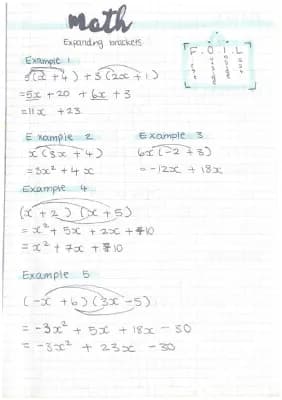 math
Expanding brackets
F.O.I.L
Example 1
5(x + 4) + 3(2x + 1)
= 5x + 20 + 6x + 3
= 11x + 23
Example 2
x(3x + 4)
= 3x² + 4x
Example 3
6x(-2 + 3)
= -12x + 18x
Example 4
(x + 2)(x + 5)
= x² + 5x + 2x + 10
= x² + 7x + 10
Example 5
(-x + 6)(3x - 5)
= -3x² + 5x + 18x - 30
= -3x² + 23x - 30